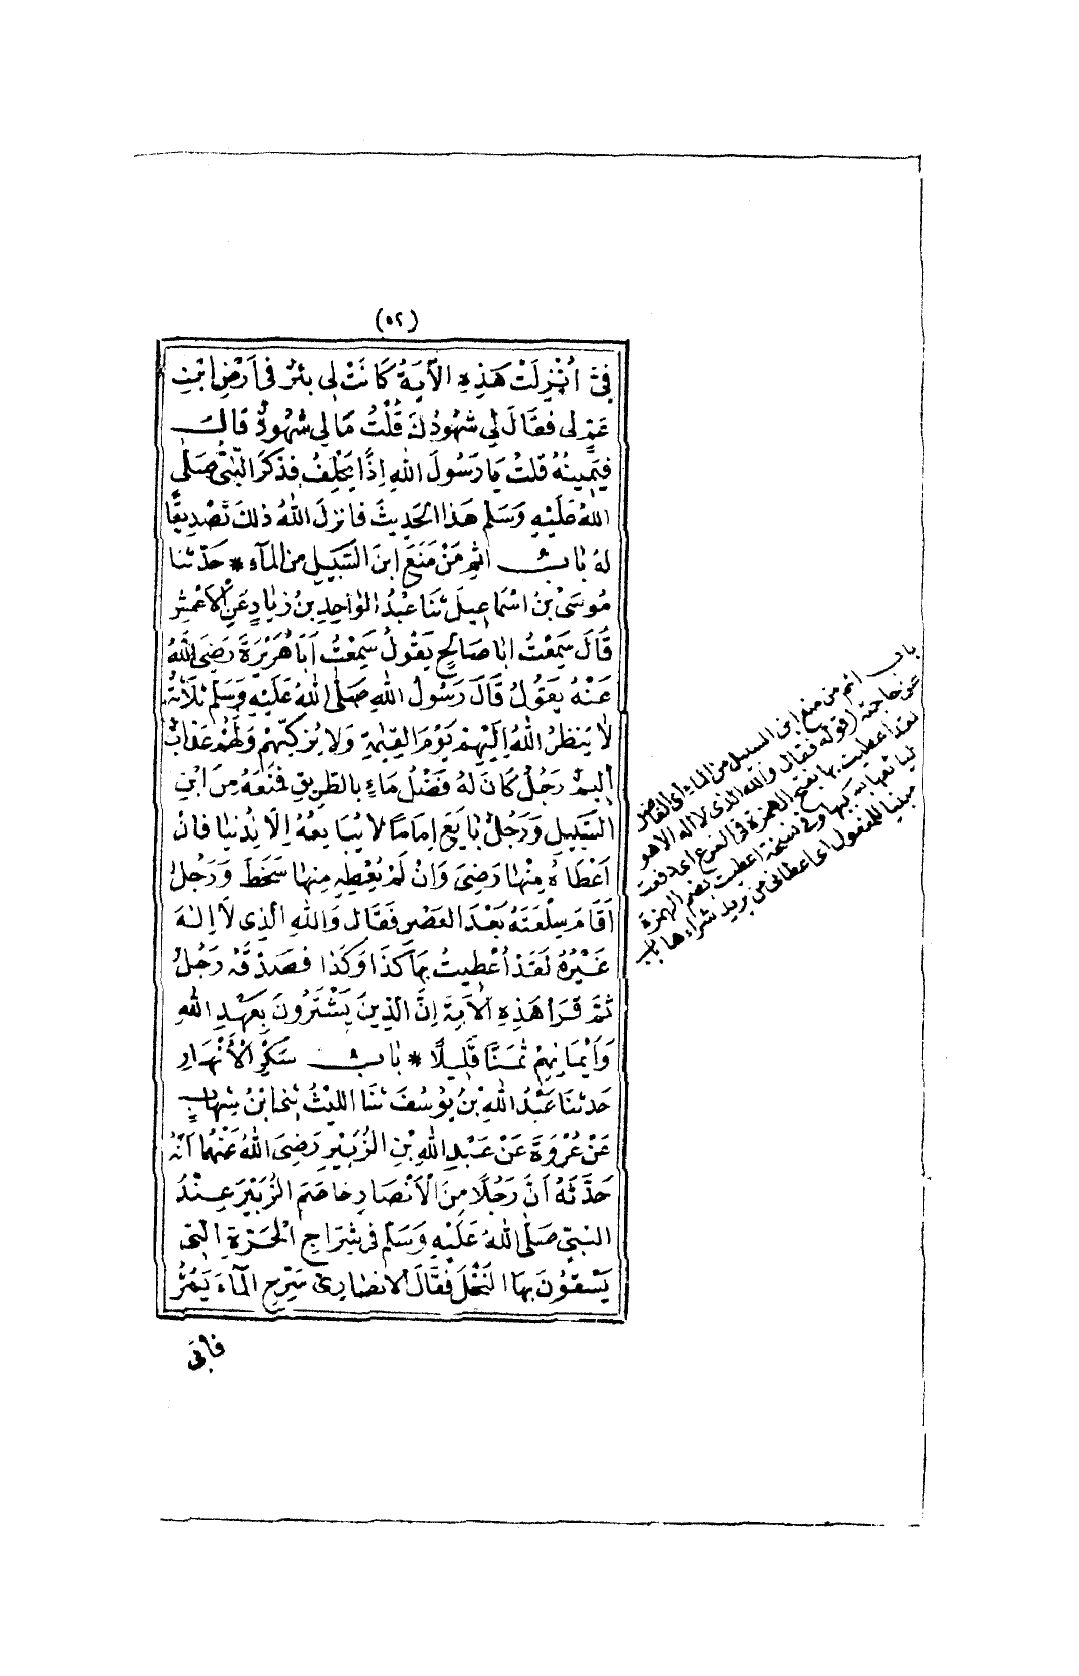 (٥٢)
فِيَّ أُنْزِلَتْ هَذِهِ الْآيَةُ كَانَتْ لِي بِئْرٌ فِي أَرْضِ ابْنِ
عَمٍّ لِي فَقَالَ لِي شُهُودُكَ قُلْتُ مَا لِي شُهُودٌ قَالَ
فَيَمِينُهُ قُلْتُ يَا رَسُولَ اللهِ إِذًا يَحْلِفُ فَذَكَرَ النَّبِيُّ صَلَّى
اللهُ عَلَيْهِ وَسَلَّمَ هَذَا الْحَدِيثَ فَانْزَلَ اللهُ ذلِكَ تَصْدِيقًا
لَهُ بَابُ إِثْمِ مَنْ مَنَعَ ابْنَ السَّبِيلِ مِنَ الْمَآءِ * حَدَّثَنَا
مُوسَى بْنُ اِسْمَاعِيلَ ثَنَا عَبْدُ الْوَاحِدِ بْنُ زِيَادٍ عَنِ الْأَعْمَشِ
قَالَ سَمِعْتُ اَبَا صَالِحٍ يَقُولُ سَمِعْتُ أَبَا هُرَيْرَةَ رَضِيَ اللهُ
عَنْهُ يَقُولُ قَالَ رَسُولُ اللهِ صَلَّى اللهُ عَلَيْهِ وَسَلَّمَ ثَلَاثَةٌ
لَا يَنْظُرُ اللهُ إِلَيْهِمْ يَوْمَ الْقِيٰمَةِ وَلَا يُزَكِّيهِمْ وَلَهُمْ عَذَابٌ
أَلِيمٌ رَجُلٌ كَانَ لَهُ فَضْلُ مَاءٍ بِالطَّرِيقِ فَمَنَعَهُ مِنَ ابْنِ
السَّبِيلِ وَرَجُلٌ بَايَعَ إِمَامًا لَا يُبَايِعُهُ إِلَّا لِدُنْيَا فَانْ
أَعْطَاهُ مِنْهَا رَضِيَ وَإِنْ لَمْ يُعْطِهِ مِنْهَا سَخَطَ وَرَجُلٌ
أَقَامَ سِلْعَتَهُ بَعْدَ الْعَصْرِ فَقَالَ وَاللهِ الَّذِي لَا إِلٰهَ
غَيْرُهُ لَقَدْ أُعْطِيتُ بِهَا كَذَا وَكَذَا فَصَدَّقَهُ رَجُلٌ
ثُمَّ قَرَأَ هَذِهِ الْآيَةَ إِنَّ الَّذِينَ يَشْتَرُونَ بِعَهْدِ اللهِ
وَأَيْمَانِهِمْ ثَمَنًا قَلِيلًا * بَابُ سَكْرِ الْأَنْهَارِ
حَدَّثَنَا عَبْدُ اللهِ بْنُ يُوسُفَ ثَنَا اللَّيْثُ ثَنَا ابْنُ شِهَابٍ
عَنْ عُرْوَةَ عَنْ عَبْدِ اللهِ بْنِ الزُّبَيْرِ رَضِيَ اللهُ عَنْهُمَا أَنَّهُ
حَدَّثَهُ أَنَّ رَجُلًا مِنَ الْأَنْصَارِ خَاصَمَ الزُّبَيْرَ عِنْدَ
النَّبِيِّ صَلَّى اللهُ عَلَيْهِ وَسَلَّمَ فِي شِرَاجِ الْحَرَّةِ الَّتِي
يَسْقُونَ بِهَا النَّخْلَ فَقَالَ الْاَنْصَارِيُّ سَرِّحِ الْمَآءَ يَمُرُّ
فَأَبَى
باب اثم من منع ابن السبيل من الماء اى الفاضل
عن حاجته (قوله فقال والله الذى لا اله الا هو
لقد اعطيت بها بفتح الهمزة فى الفرع اى دفعت
لبائعها وفى نسخة اعطيت بضم الهمزة
مبنيا للمفعول اى اعطانى من يريد شراءها باب